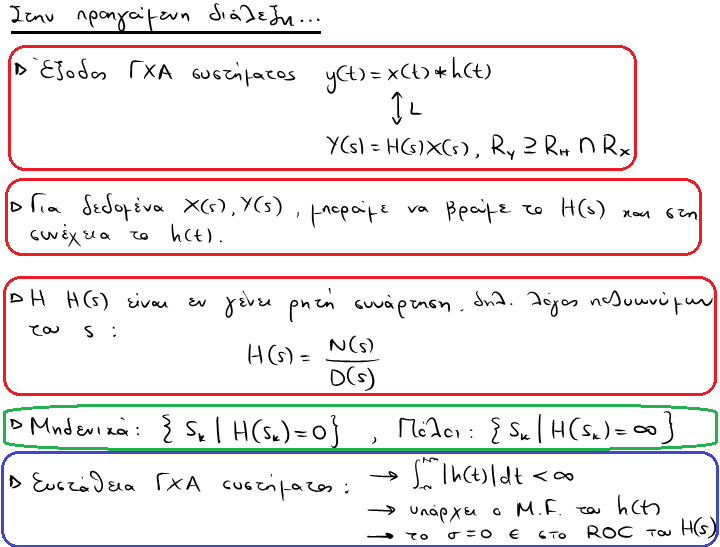 Στην προηγούμενη διάλεξη...
▷ Έξοδος ΓΧΑ συστήματος y(t) = x(t) * h(t)
↕ L
Y(s) = H(s)X(s), R_Y ⊇ R_H ∩ R_X
▷ Για δεδομένα X(s), Y(s), μπορούμε να βρούμε το H(s) και στη
συνέχεια το h(t).
▷ Η H(s) είναι εν γένει ρητή συνάρτηση, δηλ. λόγος πολυωνύμων
του s:
H(s) = N(s)/D(s)
▷ Μηδενικά: {s_k | H(s_k) = 0}, Πόλοι: {s_k | H(s_k) = ∞}
▷ Ευστάθεια ΓΧΑ συστήματος: → ∫_{-∞}^{+∞} |h(t)|dt < ∞
→ υπάρχει ο Μ.F. του h(t)
→ το σ=0 ∈ στο ROC του H(s)